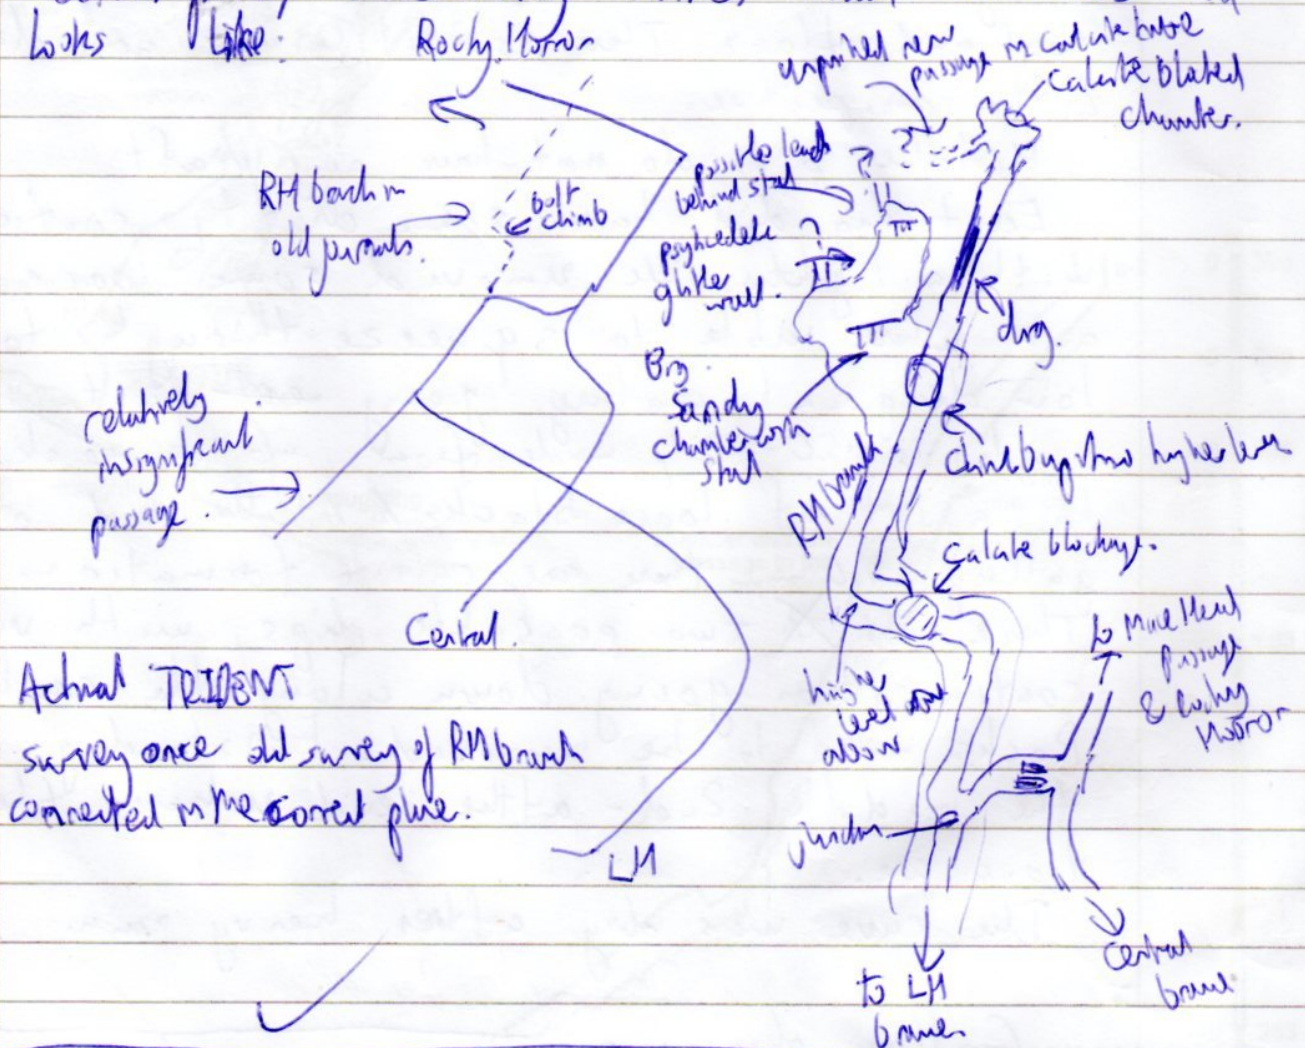 Looks like!
Rocky Horror
RH branch in
old journals.
bolt
climb
relatively
insignificant
passage.
Central.
Actual TRIDENT
survey once old survey of RH branch
connected in the correct place.
LH
unpushed new
passage in calcite
calcite blocked
chamber.
possible lead
behind stal
psychedelic
glitter
wall.
Big
Sandy
chamber with
stal
dig.
Climb up into higher level
RH branch
Calcite blockage.
higher
level
above
to Mare Head
passage
& Rocky
Horror
junction
to LH
branch
Central
branch